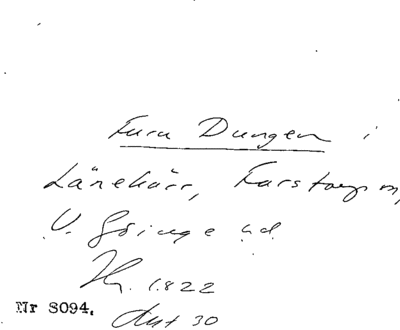 Furu Dungen i
Länekärr, Farstorp sn,
V. Göinge hd.
1822
Nr 8094.
Aut 30